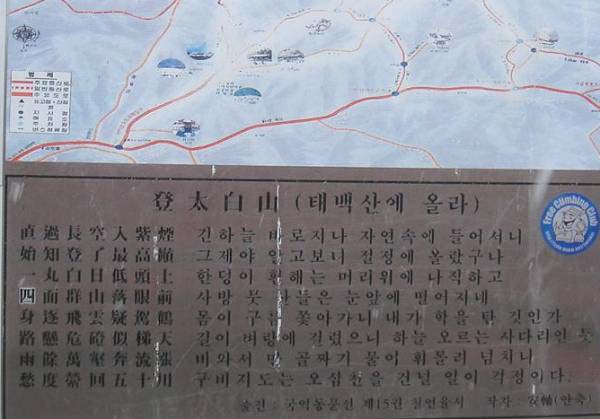 범 례
주요등산로
일반등산로
주요도로
登太白山 (태백산에 올라)
直過長空入紫煙 긴하늘 바로지나 자연속에 들어서니
始知登了最高巓 그제야 알고보니 절정에 올랐구나
一丸白日低頭上 한덩이 흰해는 머리위에 나직하고
四面群山落眼前 사방 뭇 산들은 눈앞에 떨어지네
身逐飛雲疑駕鶴 몸이 구름 쫓아가니 내가 학을 탄 것인가
路懸危磴似梯天 길이 벼랑에 걸렸으니 하늘 오르는 사다리인 듯
雨餘萬壑奔流漲 비와서 만 골짜기 물이 휘몰려 넘치니
愁度縈回五十川 구비지도는 오십천을 건널 일이 걱정이다.
출전 : 국역동문선 제15권 칠언율시 작자 : 安軸(안축)
Free Climbing Club